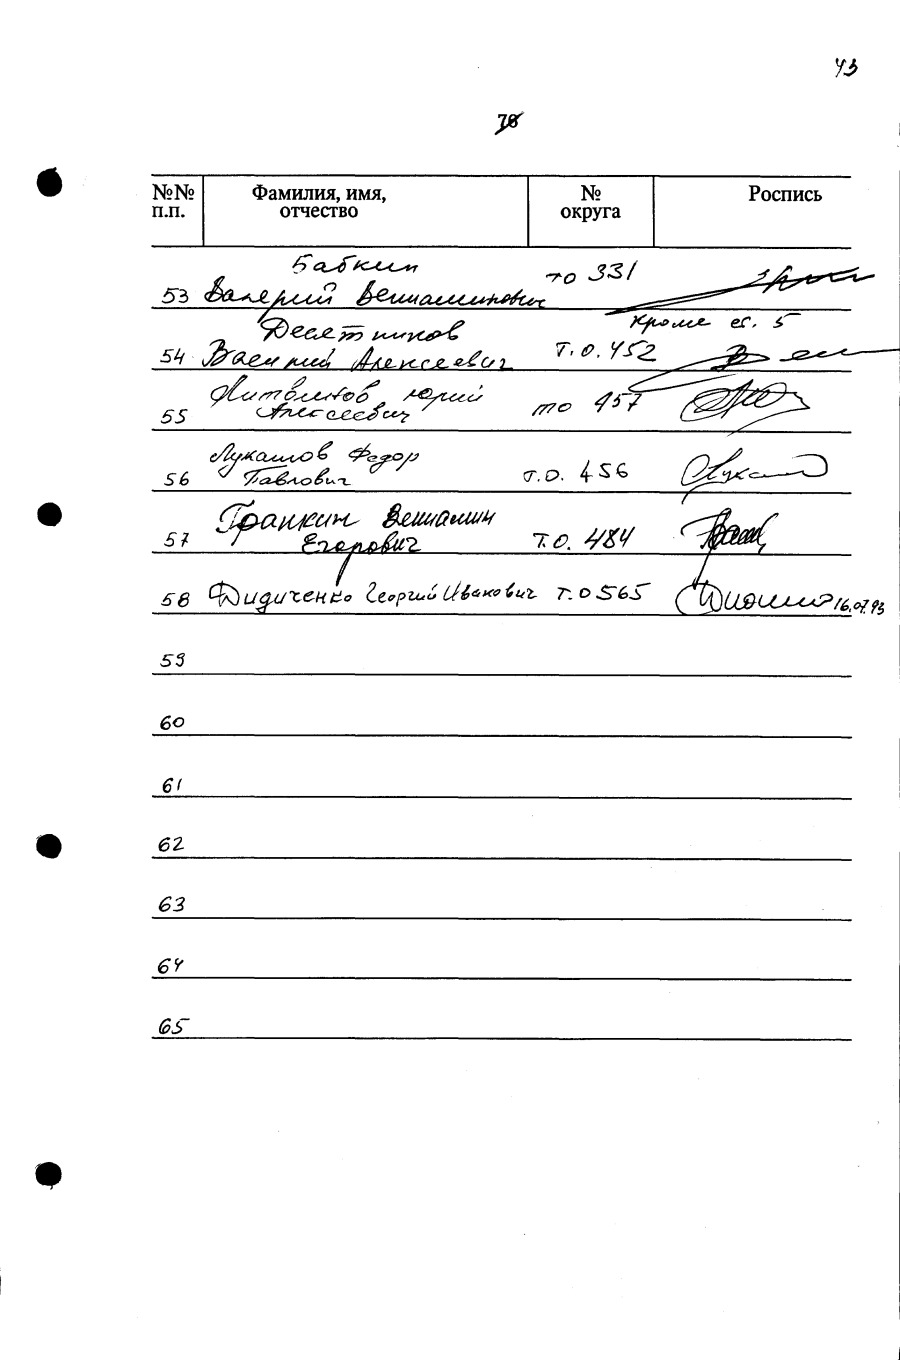 43
78
№№ Фамилия, имя, № Роспись
п.п. отчество округа
Бабкин то 331
53 Валерий Вениаминович
Десятников кроме ст. 5
54 Василий Алексеевич т.о. 452
Юрий то 457
55 Алексеевич
Лукашов Федор
56 Павлович т.о. 456
Гранкин Вениамин
57 Егорович т.о. 484
58 Дидиченко Георгий Иванович т.о 565 16.07.93
59
60
61
62
63
64
65